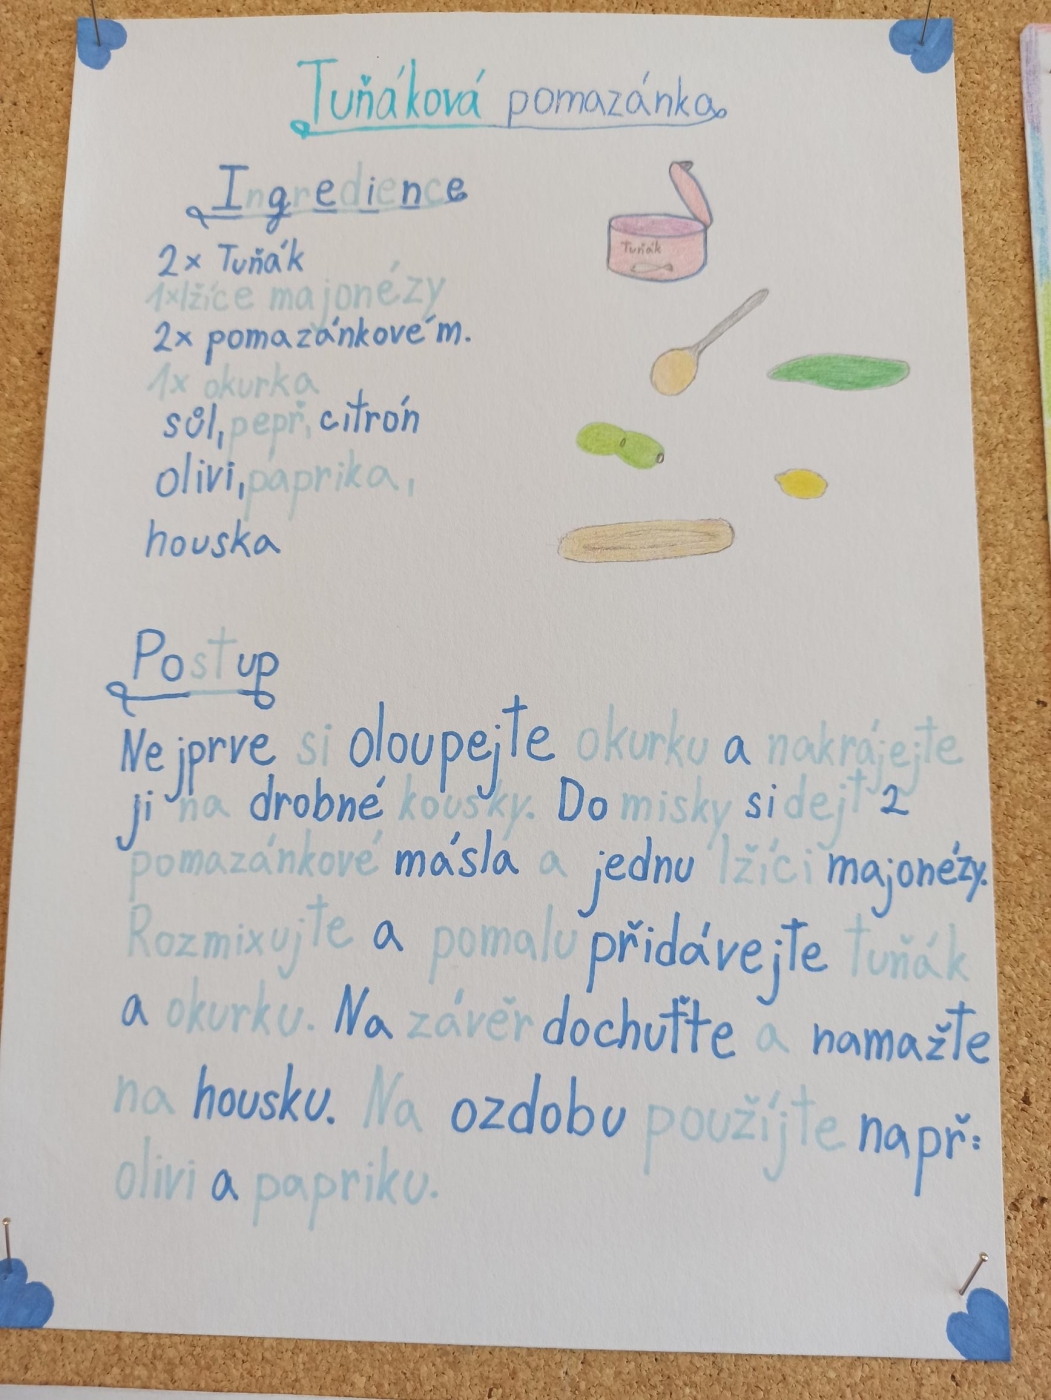 Tuňáková pomazánka
Ingredience
2x Tuňák
1xlžíce majonézy
2x pomazánkové m.
1x okurka
sůl, pepř, citrón
olivi, paprika,
houska
Tuňák
Postup
Nejprve si oloupejte okurku a nakrájejte
ji na drobné kousky. Do misky si dejt 2
pomazánkové másla a jednu lžíci majonézy.
Rozmixujte a pomalu přidávejte tuňák
a okurku. Na závěr dochuťte a namažte
na housku. Na ozdobu použíjte např:
olivi a papriku.